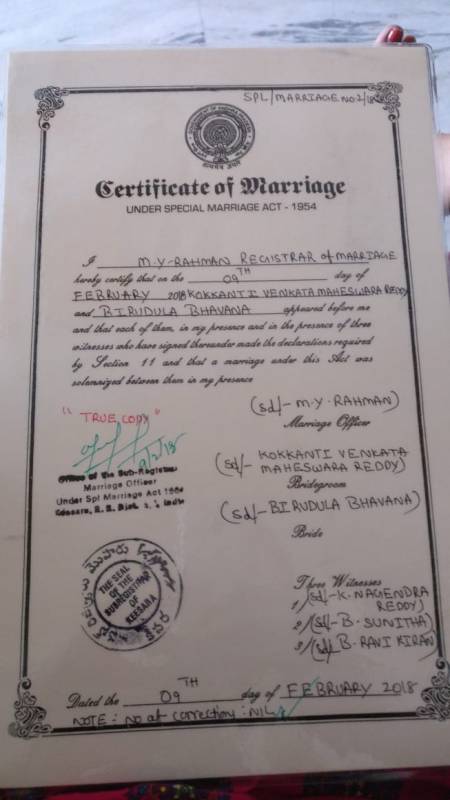 SPL/MARRIAGE NO 2/18
Certificate of Marriage
UNDER SPECIAL MARRIAGE ACT - 1954
I M.Y-RAHMAN REGISTRAR of MARRIAGE
hereby certify that on the 09TH day of
FEBRUARY 2018 KOKKANTI VENKATA MAHESWARA REDDY
and BIRUDULA BHAVANA appeared before me
and that each of them, in my presence and in the presence of three
witnesses who have signed thereunder made the declarations required
by Section 11 and that a marriage under this Act was
solemnized between them in my presence
(sd/- M.Y. RAHMAN)
Marriage Officer
"TRUE COPY"
9/2/18
Office of the Sub-Registrar
Marriage Officer
Under Spl Marriage Act 1954
Keesara, R. R. Dist.
(sd/- KOKKANTI VENKATA
MAHESWARA REDDY)
Bridegroom
(sd/- BIRUDULA BHAVANA)
Bride
THE SEAL
OF THE
SUBREGISTRAR
OF
KEESARA
Three Witnesses
1/ (sd/- K. NAGENDRA
REDDY)
2/ (sd/- B. SUNITHA)
3/ (sd/ B. RAVI KIRAN)
Dated the 09TH day of FEBRUARY 2018
NOTE: No at correction: NIL